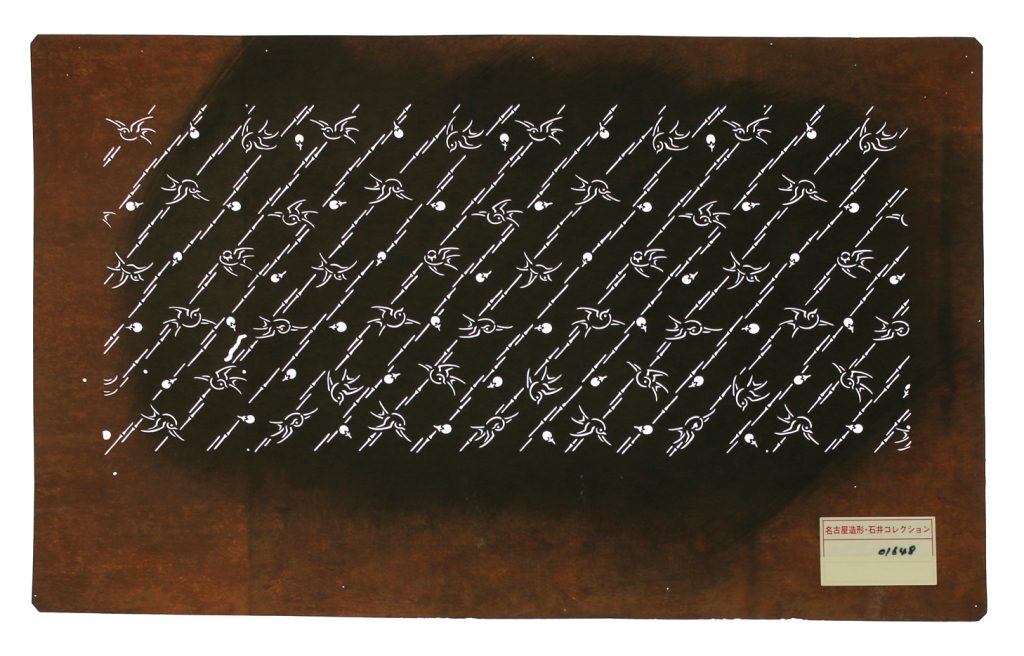 名古屋造形・石井コレクション
01648